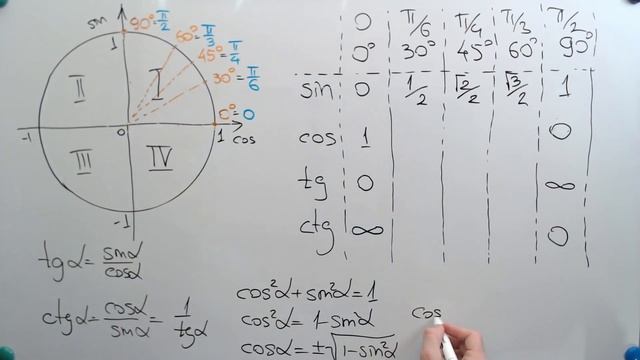 sin
90°=π/2
60°=π/3
45°=π/4
30°=π/6
0°=0
1
II
I
-1
0
1
cos
III
IV
-1
0 π/6 π/4 π/3 π/2
0° 30° 45° 60° 90°
sin 0 1/2 √2/2 √3/2 1
cos 1 0
tg 0 ∞
ctg ∞ 0
tgα = sinα/cosα
ctgα = cosα/sinα = 1/tgα
cos²α + sin²α = 1
cos²α = 1 - sin²α
cosα = ±√1-sin²α
cos